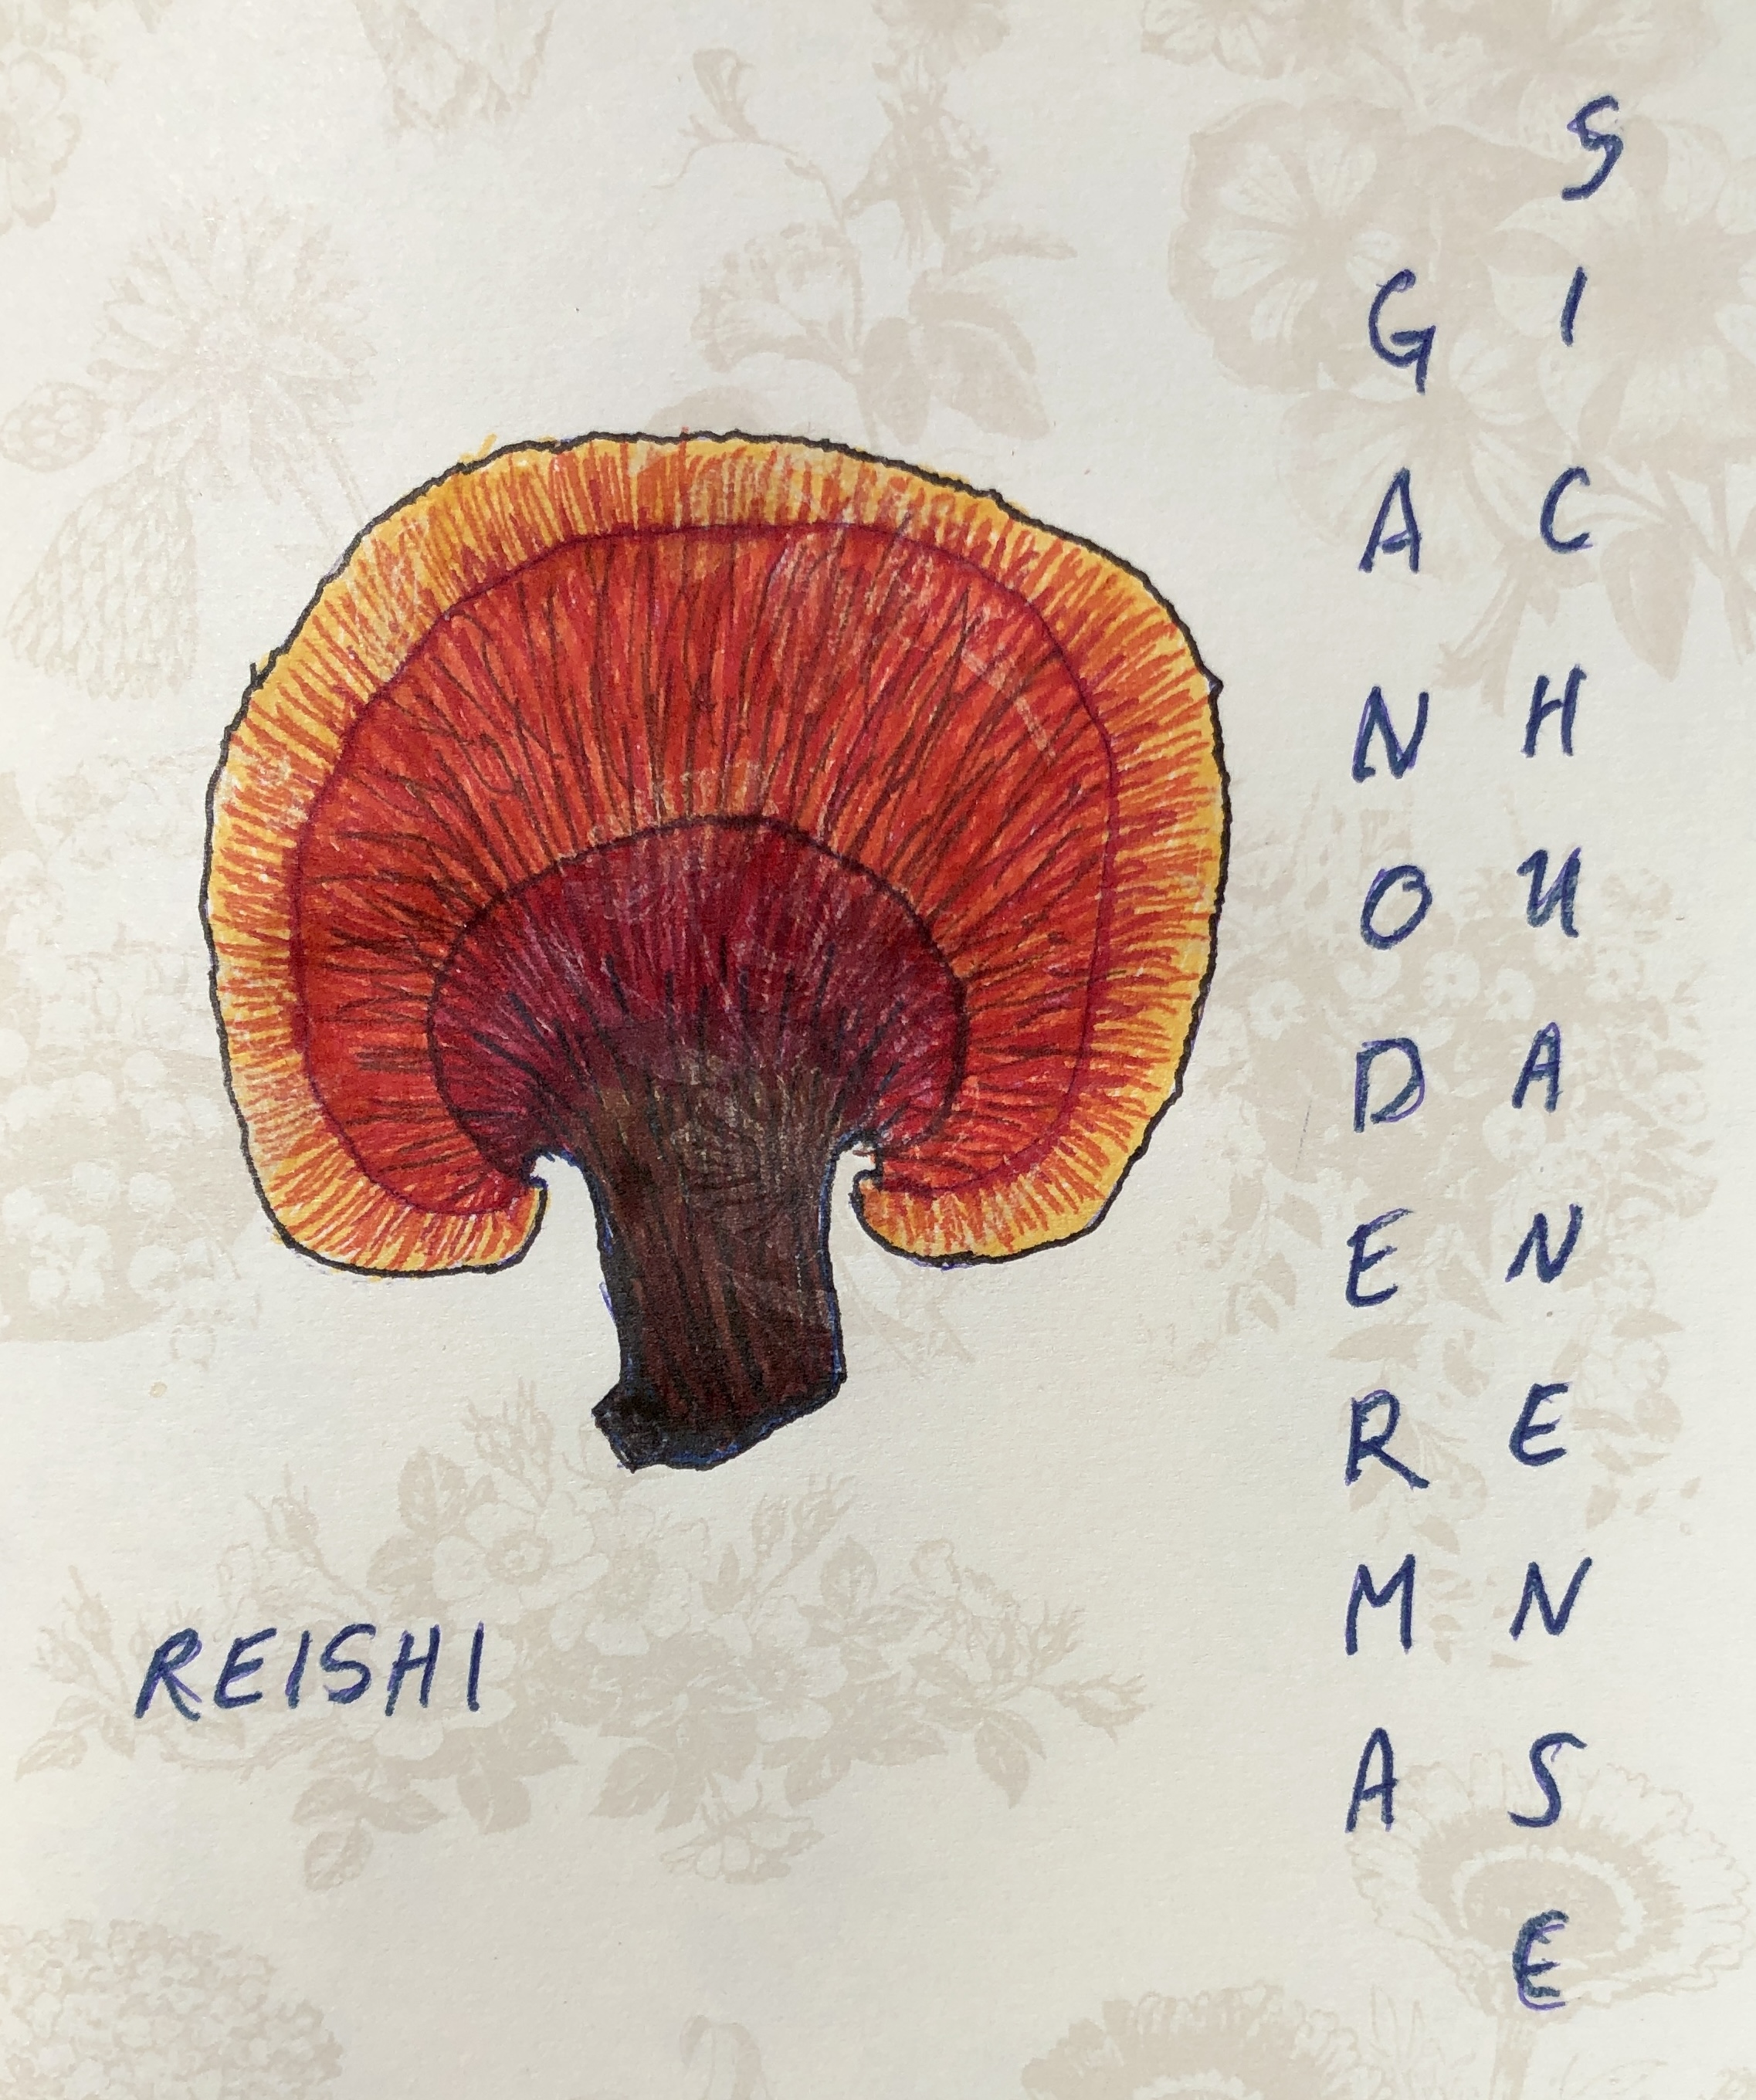 GANODERMA
SICHUANENSE
REISHI